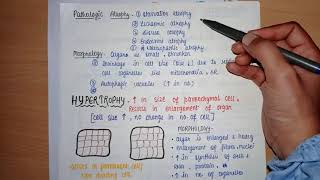 Pathologic Atrophy - ① Starvation atrophy
② Ischaemic atrophy
③ Disuse atrophy
④ Endocrine atrophy
⑤ Neuropathic atrophy
Morphology - Organs are small, shrunken
① Shrinkage in cell size (size ↓) due to
cell organelles like mitochondria, ER
② Autophagic vacuoles (↑ in no.)
HYPERTROPHY - ↑ in size of parenchymal cell.
Results in enlargement of organ
[cell size ↑, no change in no. of cell]
MORPHOLOGY:
organ is enlarged & heavy
enlargement of fibre & nuclei
↑ in synthesis of
protein
↑ no. of
organelles
non dividing cell